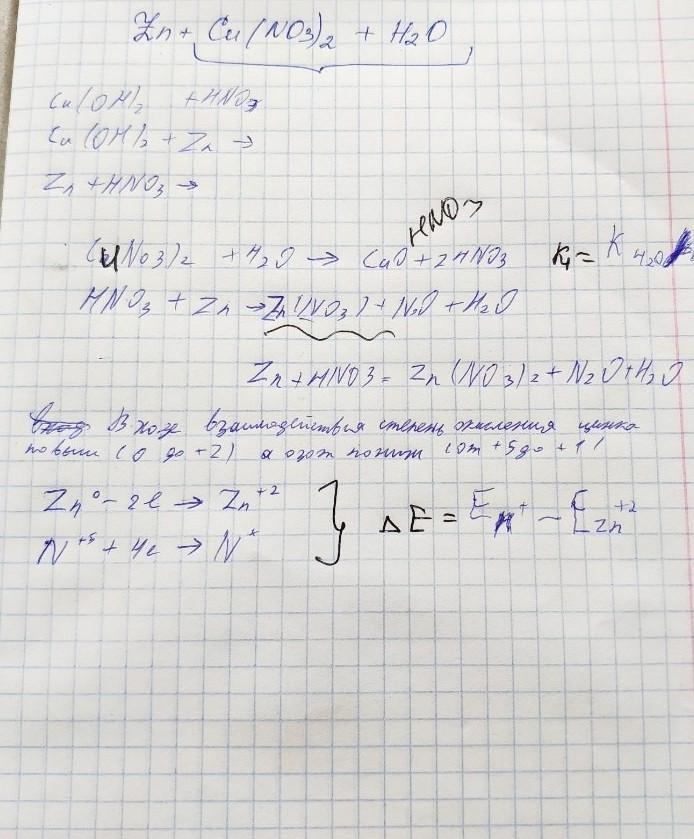 Zn + Cu(NO3)2 + H2O
Cu(OH)2 + HNO3
Cu(OH)2 + Zn →
Zn + HNO3 →
HNO3
(CuNo3)2 + H2O → CuO + 2HNO3 K1 = K H2O
HNO3 + Zn → Zn(NO3) + N2O + H2O
Zn + HNO3 = Zn(NO3)2 + N2O + H2O
В ходе взаимодействия степень окисления цинка
повыш (0 до +2) а азот пониж (от +5 до +1)
Zn⁰ - 2e → Zn⁺²
N⁺⁵ + 4e → N⁺ } ΔE = E - E Zn⁺²